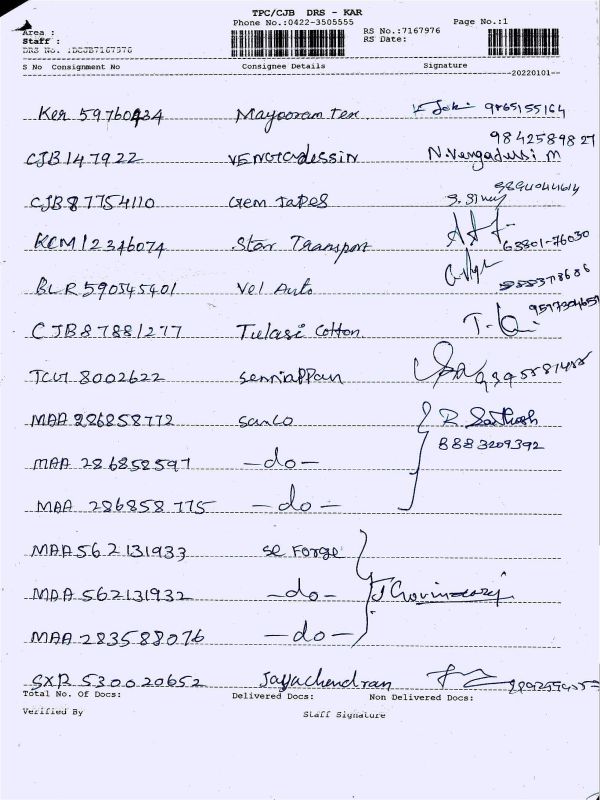 TPC/CJB DRS - KAR
Phone No.:0422-3505555 Page No.:1
Area : RS No.:7167976
Staff : RS Date:
DRS No. :DCJB7167976
S No Consignment No Consignee Details Signature
20220101
Ker 59760434 Mayooram Tex. 9865155164
9842589827
CJB147922 N.Vengadessin M
CJB87754110 Gem Tapes
KCM12346074 Star Transport
BLR590545401 Vel Auto
CJB87881277 Tulasi Cotton.
TCUT 8002622 senniappan
MAA 286858772 sanco R Santhosh
8883209392
MAA 286858597 -do-
MAA 286858775 -do-
MAA562131933 se Forge
MAA562131932 -do- J Govindaraj
MAA 283588076 -do-
SXR 530020652 Jayachendran
Total No. Of Docs: Delivered Docs: Non Delivered Docs:
Verified By Staff Signature